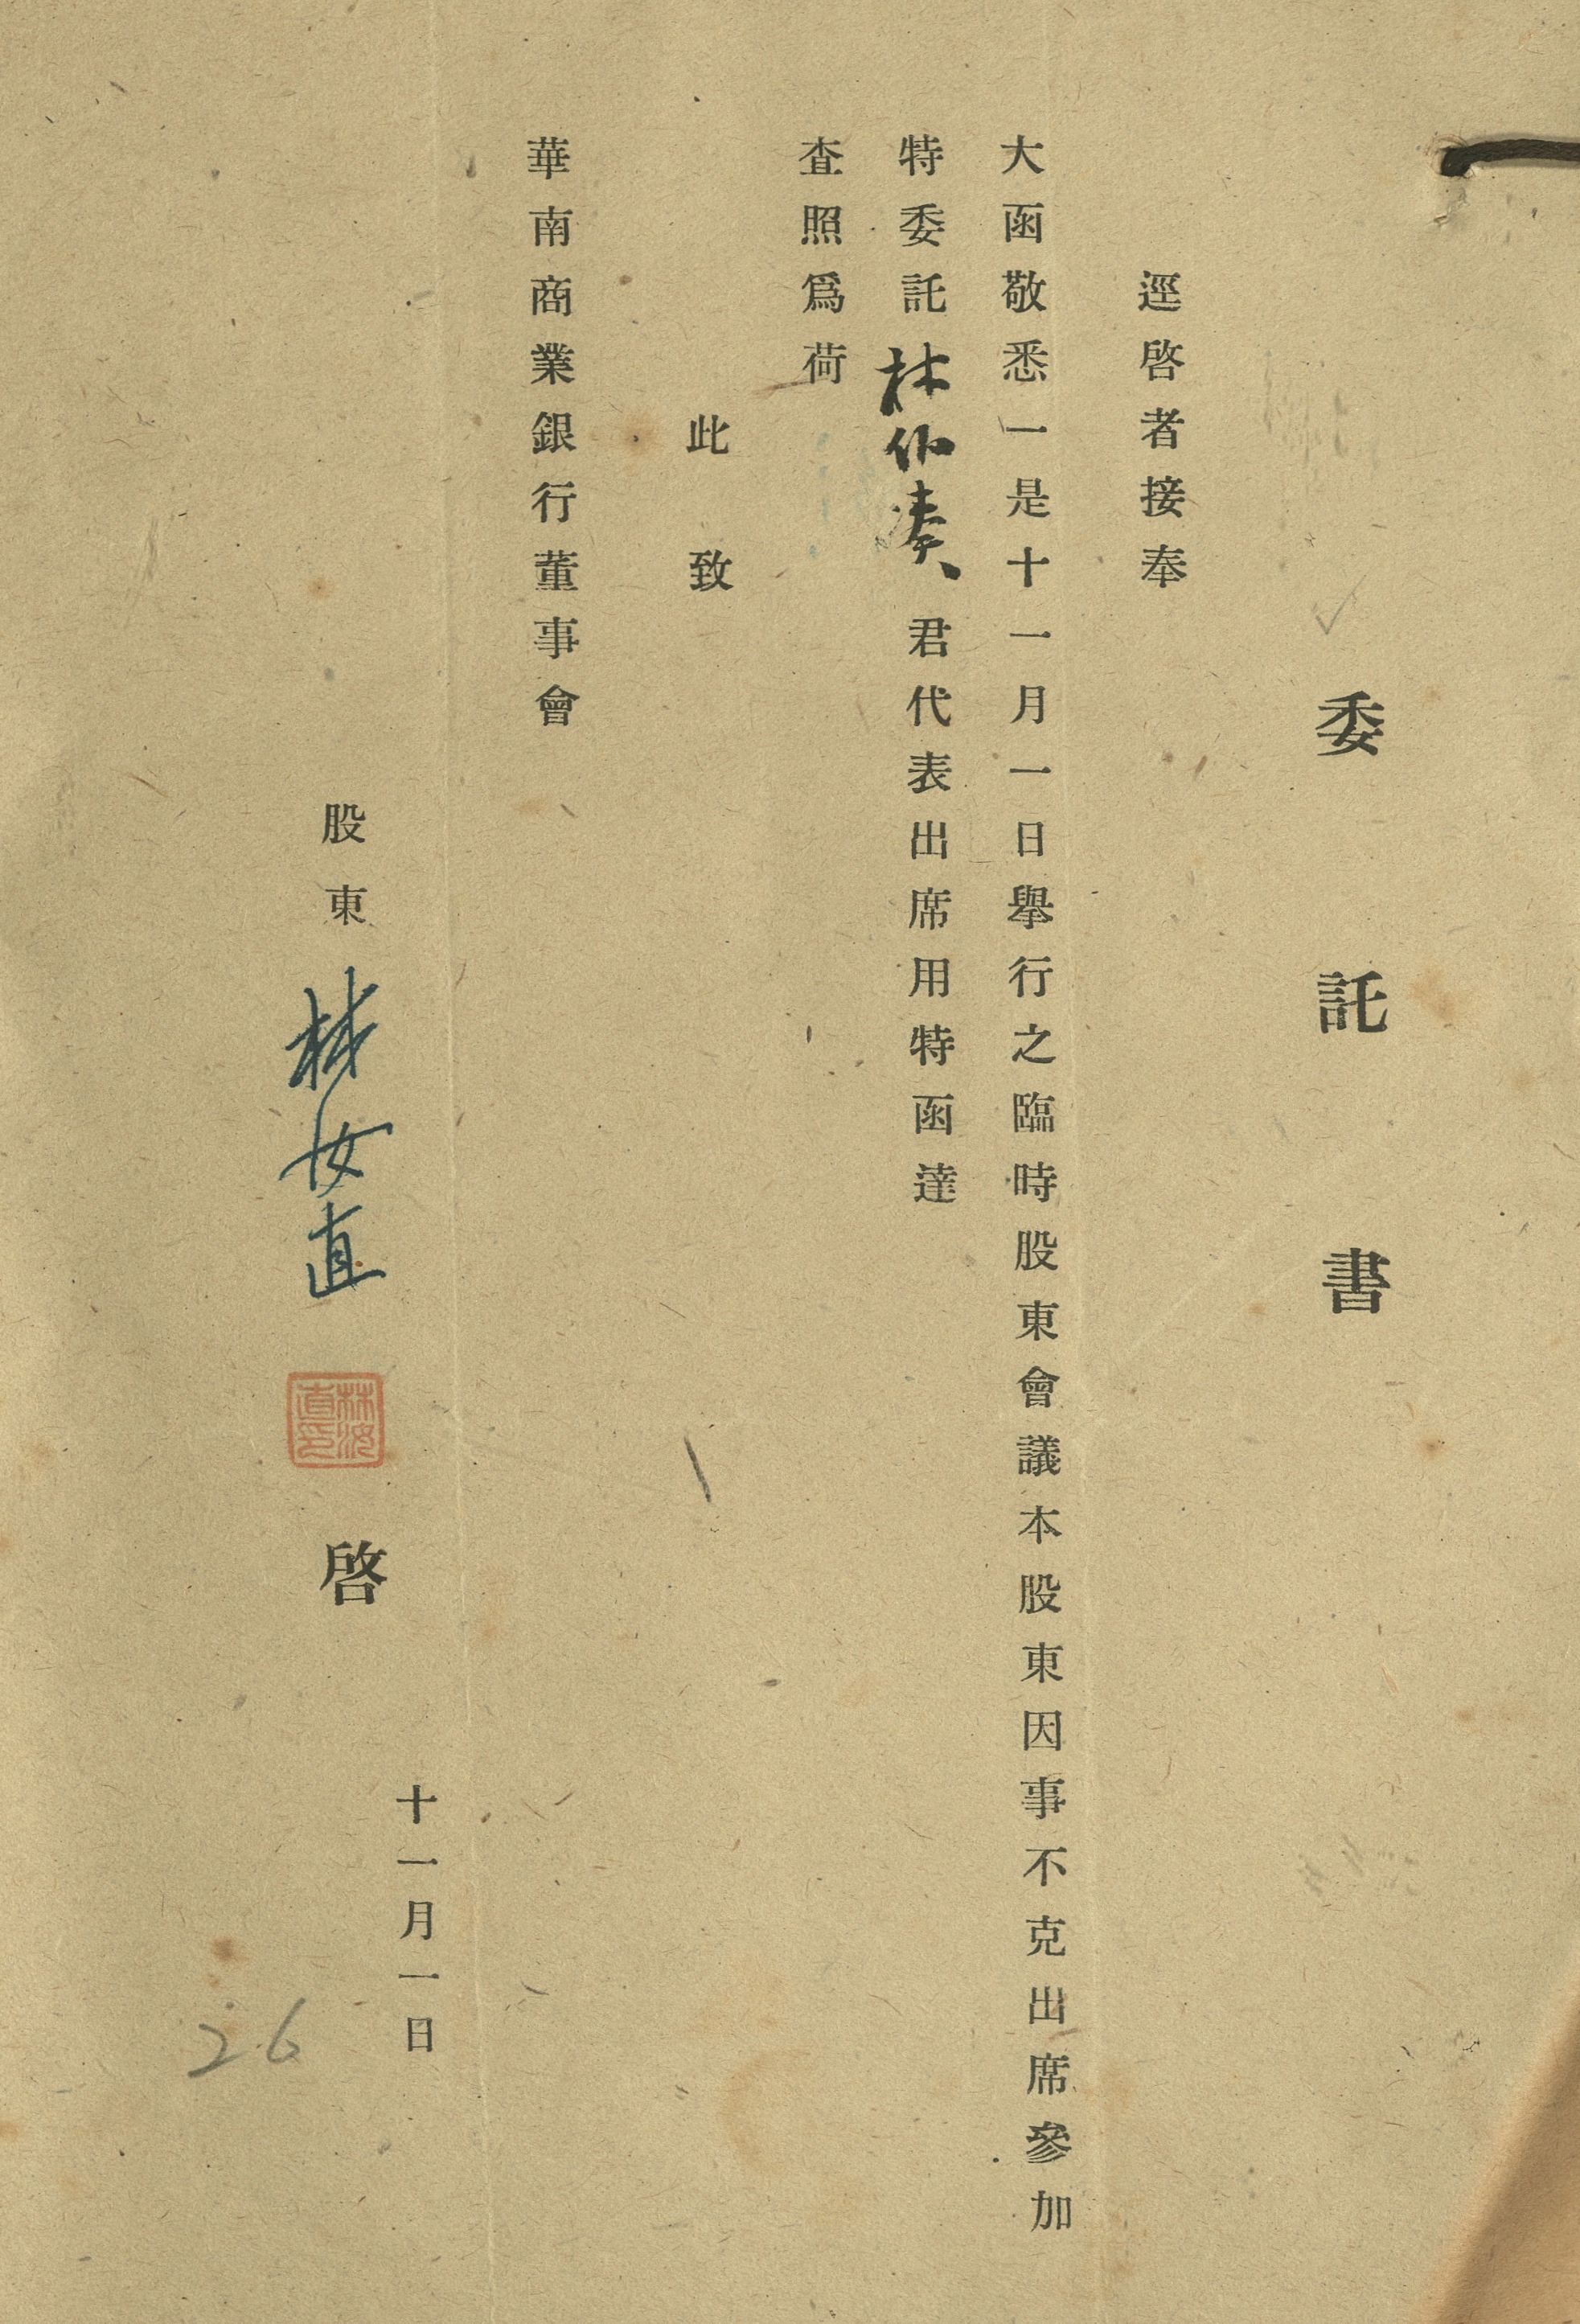 委託書
逕啓者接奉
大函敬悉一是十一月一日舉行之臨時股東會議本股東因事不克出席參加
特委託林伯奏君代表出席用特函達
查照爲荷
此致
華南商業銀行董事會
十一月一日
股東林女直啓
26